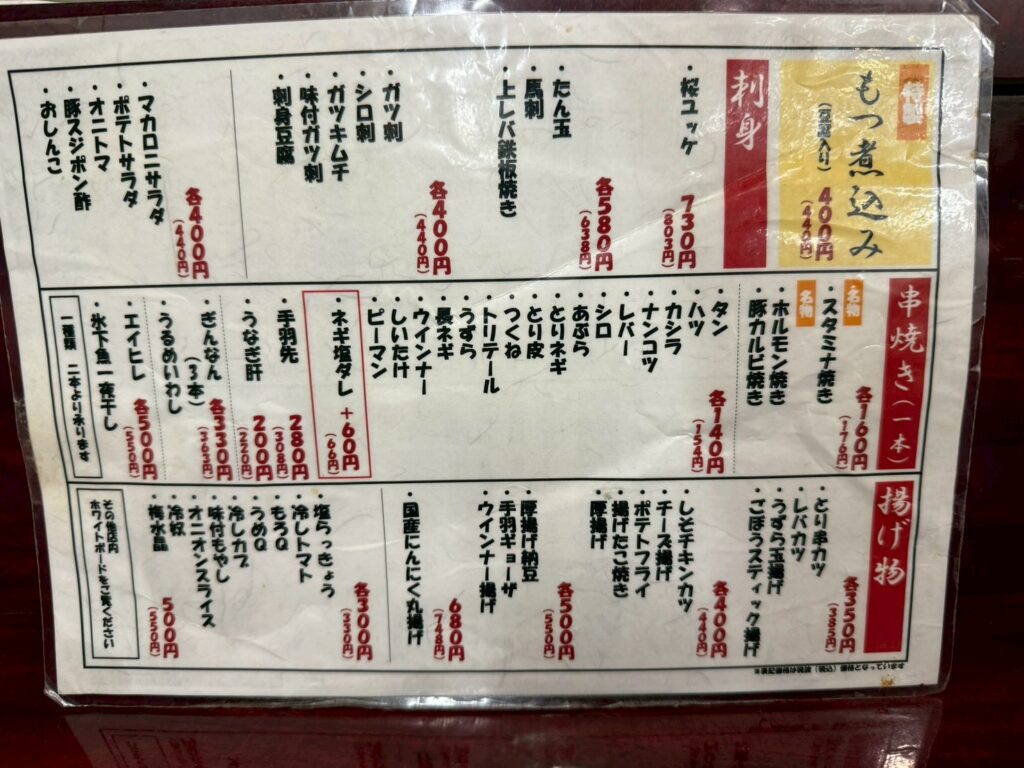 特製
もつ煮込み
(豆腐入り)
400円
(440円)
刺身
・桜ユッケ
730円
(803円)
・たん玉
・馬刺
・上レバ鉄板焼き
各580円
(638円)
・ガツ刺
・シロ刺
・ガツキムチ
・味付ガツ刺
・刺身豆腐
各400円
(440円)
・マカロニサラダ
・ポテトサラダ
・オニトマ
・豚スジポン酢
・おしんこ
各400円
(440円)
串焼き(一本)
名物
・スタミナ焼き
名物
・ホルモン焼き
・豚カルビ焼き
各160円
(176円)
・タン
・ハツ
・カシラ
・ナンコツ
・レバー
・シロ
・あぶら
・とりネギ
・とり皮
・つくね
・トリテール
・うずら
・長ネギ
・ウインナー
・しいたけ
・ピーマン
各140円
(154円)
・ネギ塩ダレ
+60円
(66円)
・手羽先
280円
(308円)
・うなぎ肝
200円
(220円)
・ぎんなん
(3本)
・うるめいわし
各330円
(363円)
・エイヒレ
・氷下魚一夜干し
各500円
(550円)
一種類 二本より承ります
揚げ物
・とり串カツ
・レバカツ
・うずら玉揚げ
・ごぼうスティック揚げ
各350円
(385円)
・しそチキンカツ
・チーズ揚げ
・ポテトフライ
・揚げたこ焼き
・厚揚げ
各400円
(440円)
・厚揚げ納豆
・手羽ギョーザ
・ウインナー揚げ
各500円
(550円)
・国産にんにく丸揚げ
680円
(748円)
・塩らっきょう
・冷しトマト
・もろQ
・うめQ
・冷しカブ
・味付もやし
・オニオンスライス
・冷奴
各300円
(330円)
・梅水晶
500円
(550円)
その他店内
ホワイトボードをご覧ください